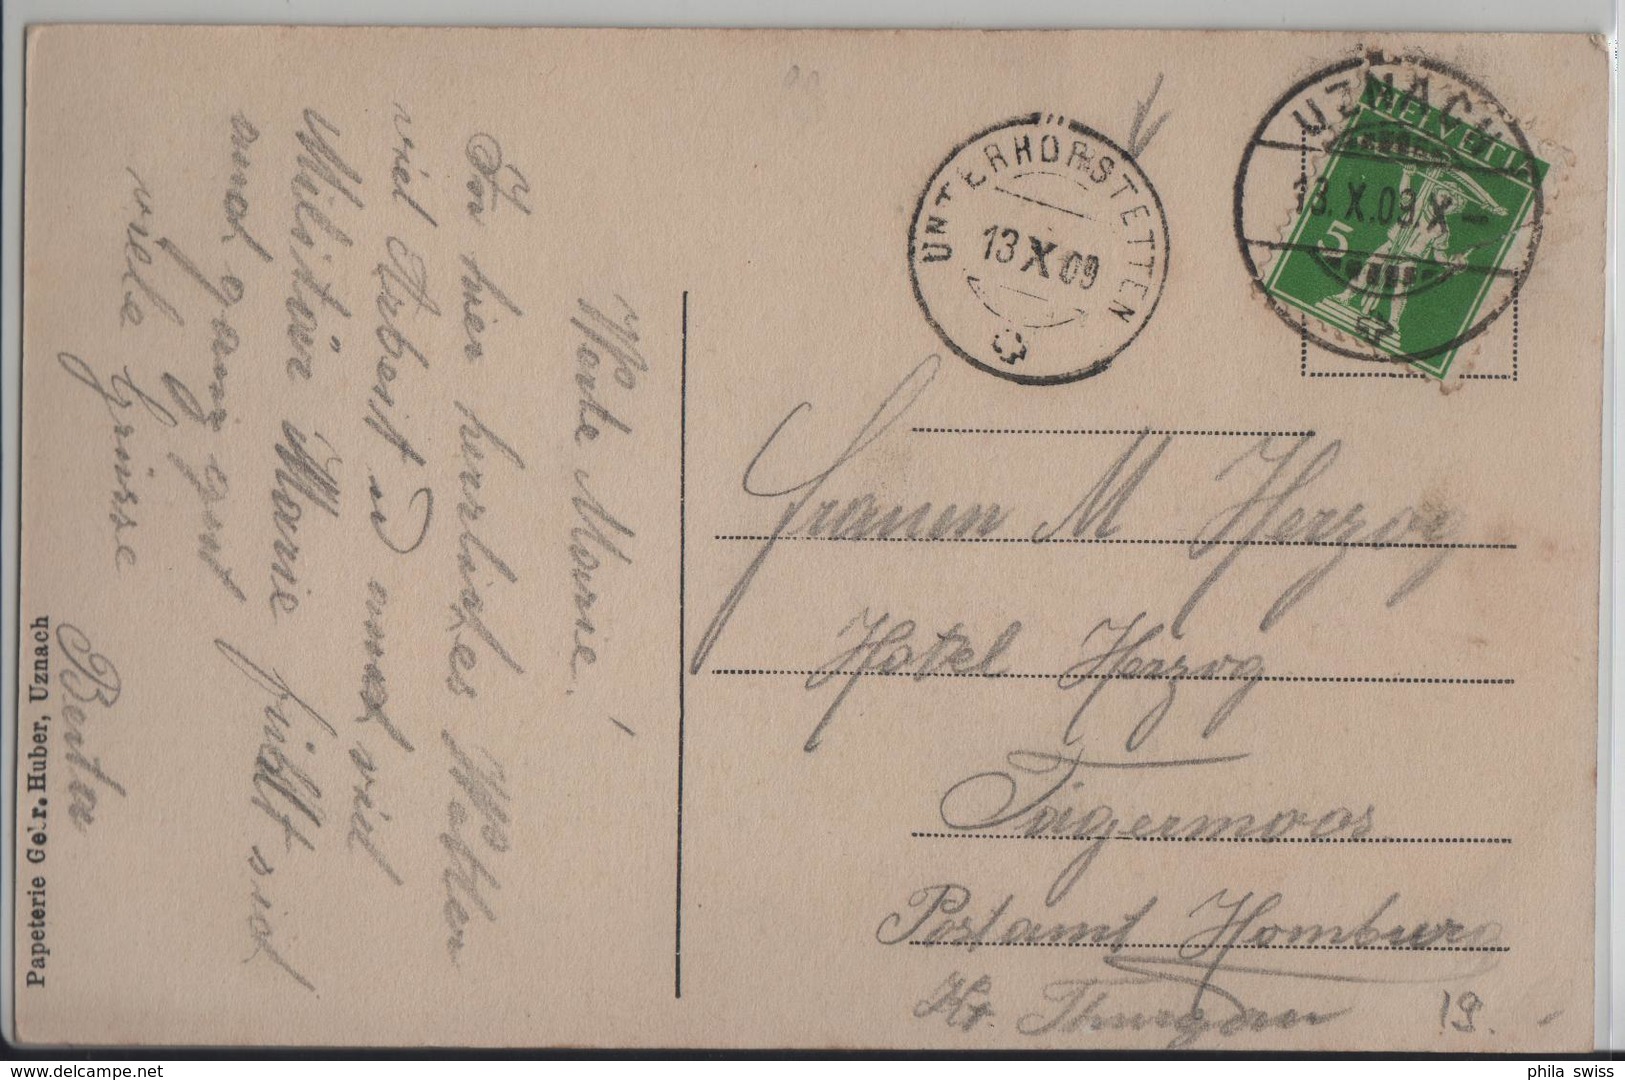 Werte Marie!
In hier herrliches Wetter
viel Arbeit u annd viel
Militär Marie fühlt sich
annd ganz gut
viele Grüsse
Berta
Papeterie Gebr. Huber, Uznach
UNTERHÖRSTETTEN
13 X 09
UZNACH
13.X.09.X-
HELVETIA
5
Frauen M Herzog
Hotel Herzog
Tägermoos
Postamt Homburg
Kt. Thurgau
19.-
phila swiss